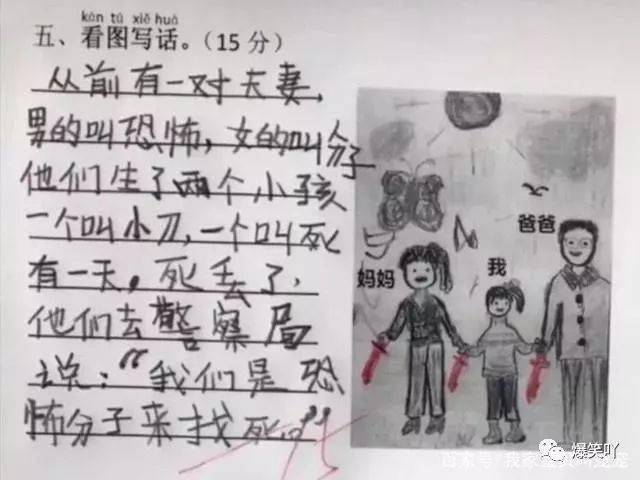 kàn tú xiě huà
五、看图写话。(15 分)
从前有一对夫妻,
男的叫恐怖,女的叫分子
他们生了两个小孩
一个叫小刀,一个叫死
有一天,死丢了,
他们去警察局
说:“我们是恐
怖分子来找死。”
妈妈
我
爸爸
爆笑吖